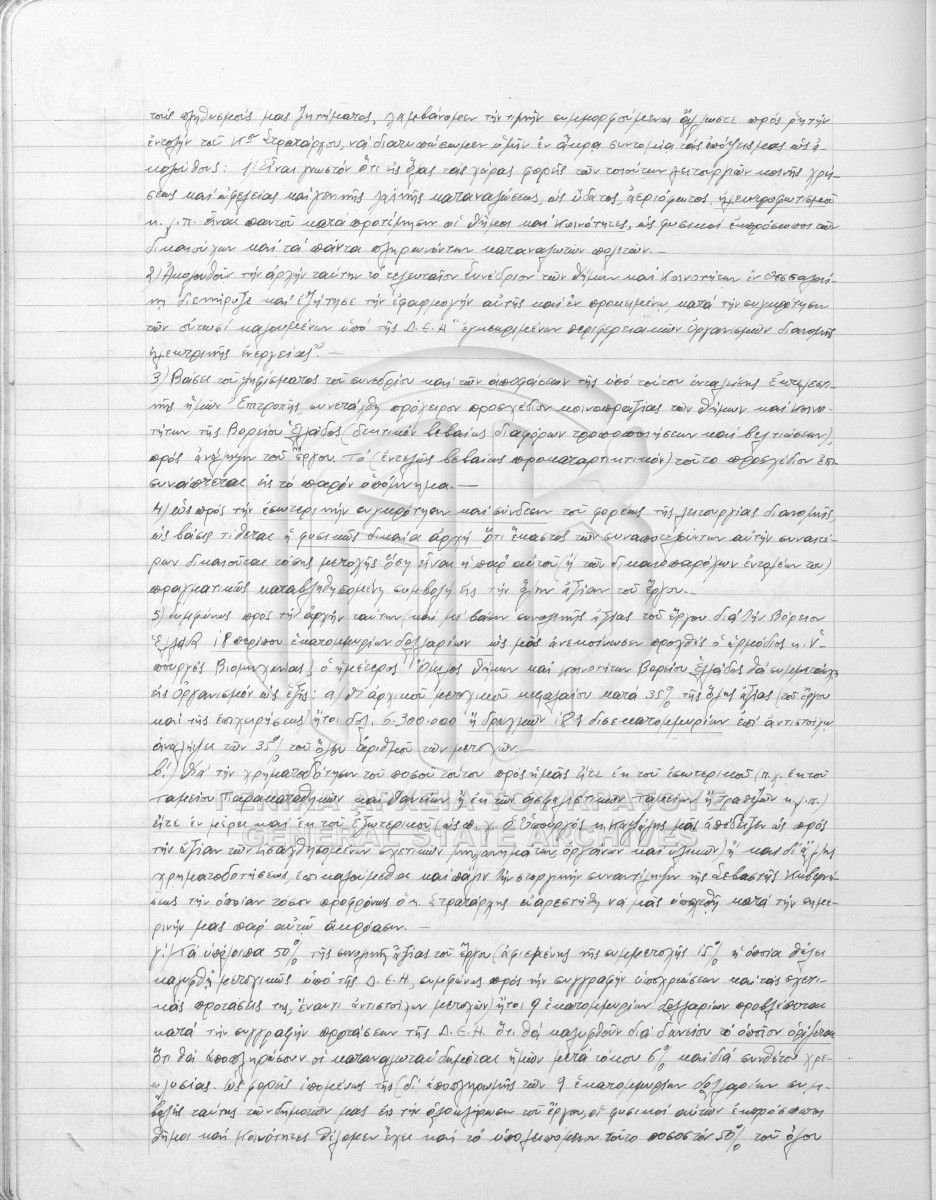 τούς πληθυσμούς μας ζητήματος, λαμβάνομεν τήν τιμήν συμμορφούμενοι ἄλλωστε πρός ρητήν
ἐντολήν τοῦ κ. Στρατάρχου, νά διατυπώσωμεν ὑμῖν ἐν ἄκρᾳ συντομίᾳ τάς ἀπόψεις μας ὡς ἀ-
κολούθως: 1) Εἶναι γνωστόν ὅτι εἰς ὅλας τάς χώρας φορεῖς τῶν τοιούτων λειτουργιῶν κοινῆς χρή-
σεως καί ὠφελείας καί γενικῆς λαϊκῆς καταναλώσεως, ὡς ὕδατος, ἀεριόφωτος, ἠλεκτροφωτισμοῦ
κ.λ.π. εἶναι παντοῦ κατά προτίμησιν οἱ Δῆμοι καί Κοινότητες, ὡς φυσικοί ἐκπρόσωποι τῶν
δικαιούχων καί τά πάντα πληρωνόντων καταναλωτῶν πολιτῶν.—
2) Ἀκολουθοῦν τήν ἀρχήν ταύτην τό τελευταῖον Συνέδριον τῶν Δήμων καί Κοινοτήτων ἐν Θεσσαλονί-
κῃ διεκήρυξε καί ἐζήτησε τήν ἐφαρμογήν αὐτῆς καί ἐν προκειμένῳ κατά τήν συγκρότησιν
τῶν οὑτωσί καλουμένων ὑπό τῆς Δ.Ε.Η "ἐγκεκριμένων περιφερειακῶν ὀργανισμῶν διανομῆς
ἠλεκτρικῆς ἐνεργείας".—
3) Βάσει τοῦ ψηφίσματος τοῦ συνεδρίου καί τῶν ἀποφάσεων τῆς ὑπό τούτου ἐνταλείσης Ἐκτελεστι-
κῆς ἡμῶν Ἐπιτροπῆς, συνετάχθη πρόχειρον προσχέδιον κοινοπραξίας τῶν Δήμων καί Κοινο-
τήτων τῆς Βορείου Ἑλλάδος (δεκτικόν βεβαίως διαφόρων τροποποιήσεων καί βελτιώσεων),
πρός ἀνάληψιν τοῦ ἔργου. Τό (ἐντελῶς βεβαίως προκαταρκτικόν) τοῦτο προσχέδιον ἐπι-
συνάπτεται εἰς τό παρόν ὑπόμνημα.—
4) Ὡς πρός τήν ἐσωτερικήν συγκρότησιν καί σύνδεσιν τοῦ φορέως τῆς λειτουργίας διανομῆς,
ὡς βάσις τίθεται ἡ φυσικῶς δικαία ἀρχή ὅτι ἕκαστος τῶν συναποτελούντων αὐτήν συνεταί-
ρων δικαιοῦται τόσης μετοχῆς ὅση εἶναι ἡ παρ' αὐτοῦ (ἤ τῶν δικαιοπαρόχων ἐντολέων του)
πραγματικῶς καταβληθησομένη συμβολή εἰς τήν ὅλην ἀξίαν τοῦ ἔργου.—
5) Συμφώνως πρός τήν ἀρχήν ταύτην (καί μέ βάσιν συνολικῆς ἀξίας τοῦ ἔργου διά τήν Βόρειον
Ἑλλάδα 18 περίπου ἑκατομμυρίων δολλαρίων ὡς μᾶς ἀνεκοίνωσεν προχθές ὁ ἁρμόδιος κ. Ὑ-
πουργός Βιομηχανίας) ὁ ἡμέτερος Ὅμιλος Δήμων καί Κοινοτήτων Βορείου Ἑλλάδος θά συμμετάσχῃ
εἰς ὀργανισμόν ὡς ἑξῆς: α) δι' ἀρχικοῦ μετοχικοῦ κεφαλαίου κατά 35% τῆς ὅλης ἀξίας τοῦ ἔργου
καί τῆς ἐπιχειρήσεως (ἤτοι δολ. 6.300.000 ἤ δραχμῶν 189 δισεκατομμυρίων ἐπί ἀντιστοίχῳ
ἀναλήψει τῶν 35% τοῦ ὅλου ἀριθμοῦ τῶν μετοχῶν.—
β!) Διά τήν χρηματοδότησιν τοῦ ποσοῦ τούτου πρός ἡμᾶς εἴτε ἐκ τοῦ ἐσωτερικοῦ (π.χ. ἐκ τοῦ
Ταμείου Παρακαταθηκῶν καί Δανείων ἤ ἐκ τῶν ἀσφαλιστικῶν Ταμείων ἤ Τραπεζῶν κ.λ.π.)
εἴτε ἐν μέρει καί ἐκ τοῦ Ἐξωτερικοῦ (ὡς π.χ. ὁ Ὑπουργός κ. μᾶς ἀπέδειξεν ὡς πρός
τήν ἀξίαν τῶν εἰσαχθησομένων σχετικῶν μηχανημάτων, ὀργάνων καί ὑλικῶν) ἤ καί δι' ἄλλης
χρηματοδοτήσεως, ἐπικαλούμεθα καί πάλιν τήν στοργικήν συναντίληψιν τῆς Σεβαστῆς Κυβερνή-
σεως τήν ὁποίαν τόσον προφρόνως ὁ κ. Στρατάρχης εὐηρεστήθη νά μᾶς ὑποσχεθῇ κατά τήν σημε-
ρινήν μας παρ' αὐτῷ ἀκρόασιν.—
γ!) Τά ὑπόλοιπα 50% τῆς συνολικῆς ἀξίας τοῦ ἔργου (ἀφιεμένης τῆς συμμετοχῆς 15% ἡ ὁποία θέλει
καλυφθῇ μετοχικῶς ὑπό τῆς Δ.Ε.Η, συμφώνως πρός τήν συγγραφήν ὑποχρεώσεων καί τάς σχετι-
κάς προτάσεις της, ἔναντι ἀντιστοίχων μετοχῶν) ἤτοι 9 ἑκατομμυρίων δολλαρίων προβλέπεται
κατά τήν συγγραφήν προτάσεων τῆς Δ.Ε.Η. ὅτι θά καλυφθοῦν διά δανείου τό ὁποῖον ὁρίζεται
ὅτι θά ἀποπληρώσουν οἱ καταναλωταί δημόται ἡμῶν μετά τόκου 6% καί διά συνθέτου χρε-
ωλυσίας. Ὡς φορεῖς ἑπομένως τῆς (δι' ἀποπληρωμῆς τῶν 9 ἑκατομμυρίων δολλαρίων) συμ-
βολῆς ταύτης τῶν δημοτῶν μας εἰς τήν ὁλοκλήρωσιν τοῦ ἔργου, οἱ φυσικοί αὐτῶν ἐκπρόσωποι
Δῆμοι καί Κοινότητες θέλομεν ἔχει καί τό ὑπολειπόμενον τοῦτο ποσοστόν 50% τοῦ ὅλου
ΓΕΝΙΚΑ ΑΡΧΕΙΑ ΤΟΥ ΚΡΑΤΟΥΣ
GENERAL STATE ARCHIVES